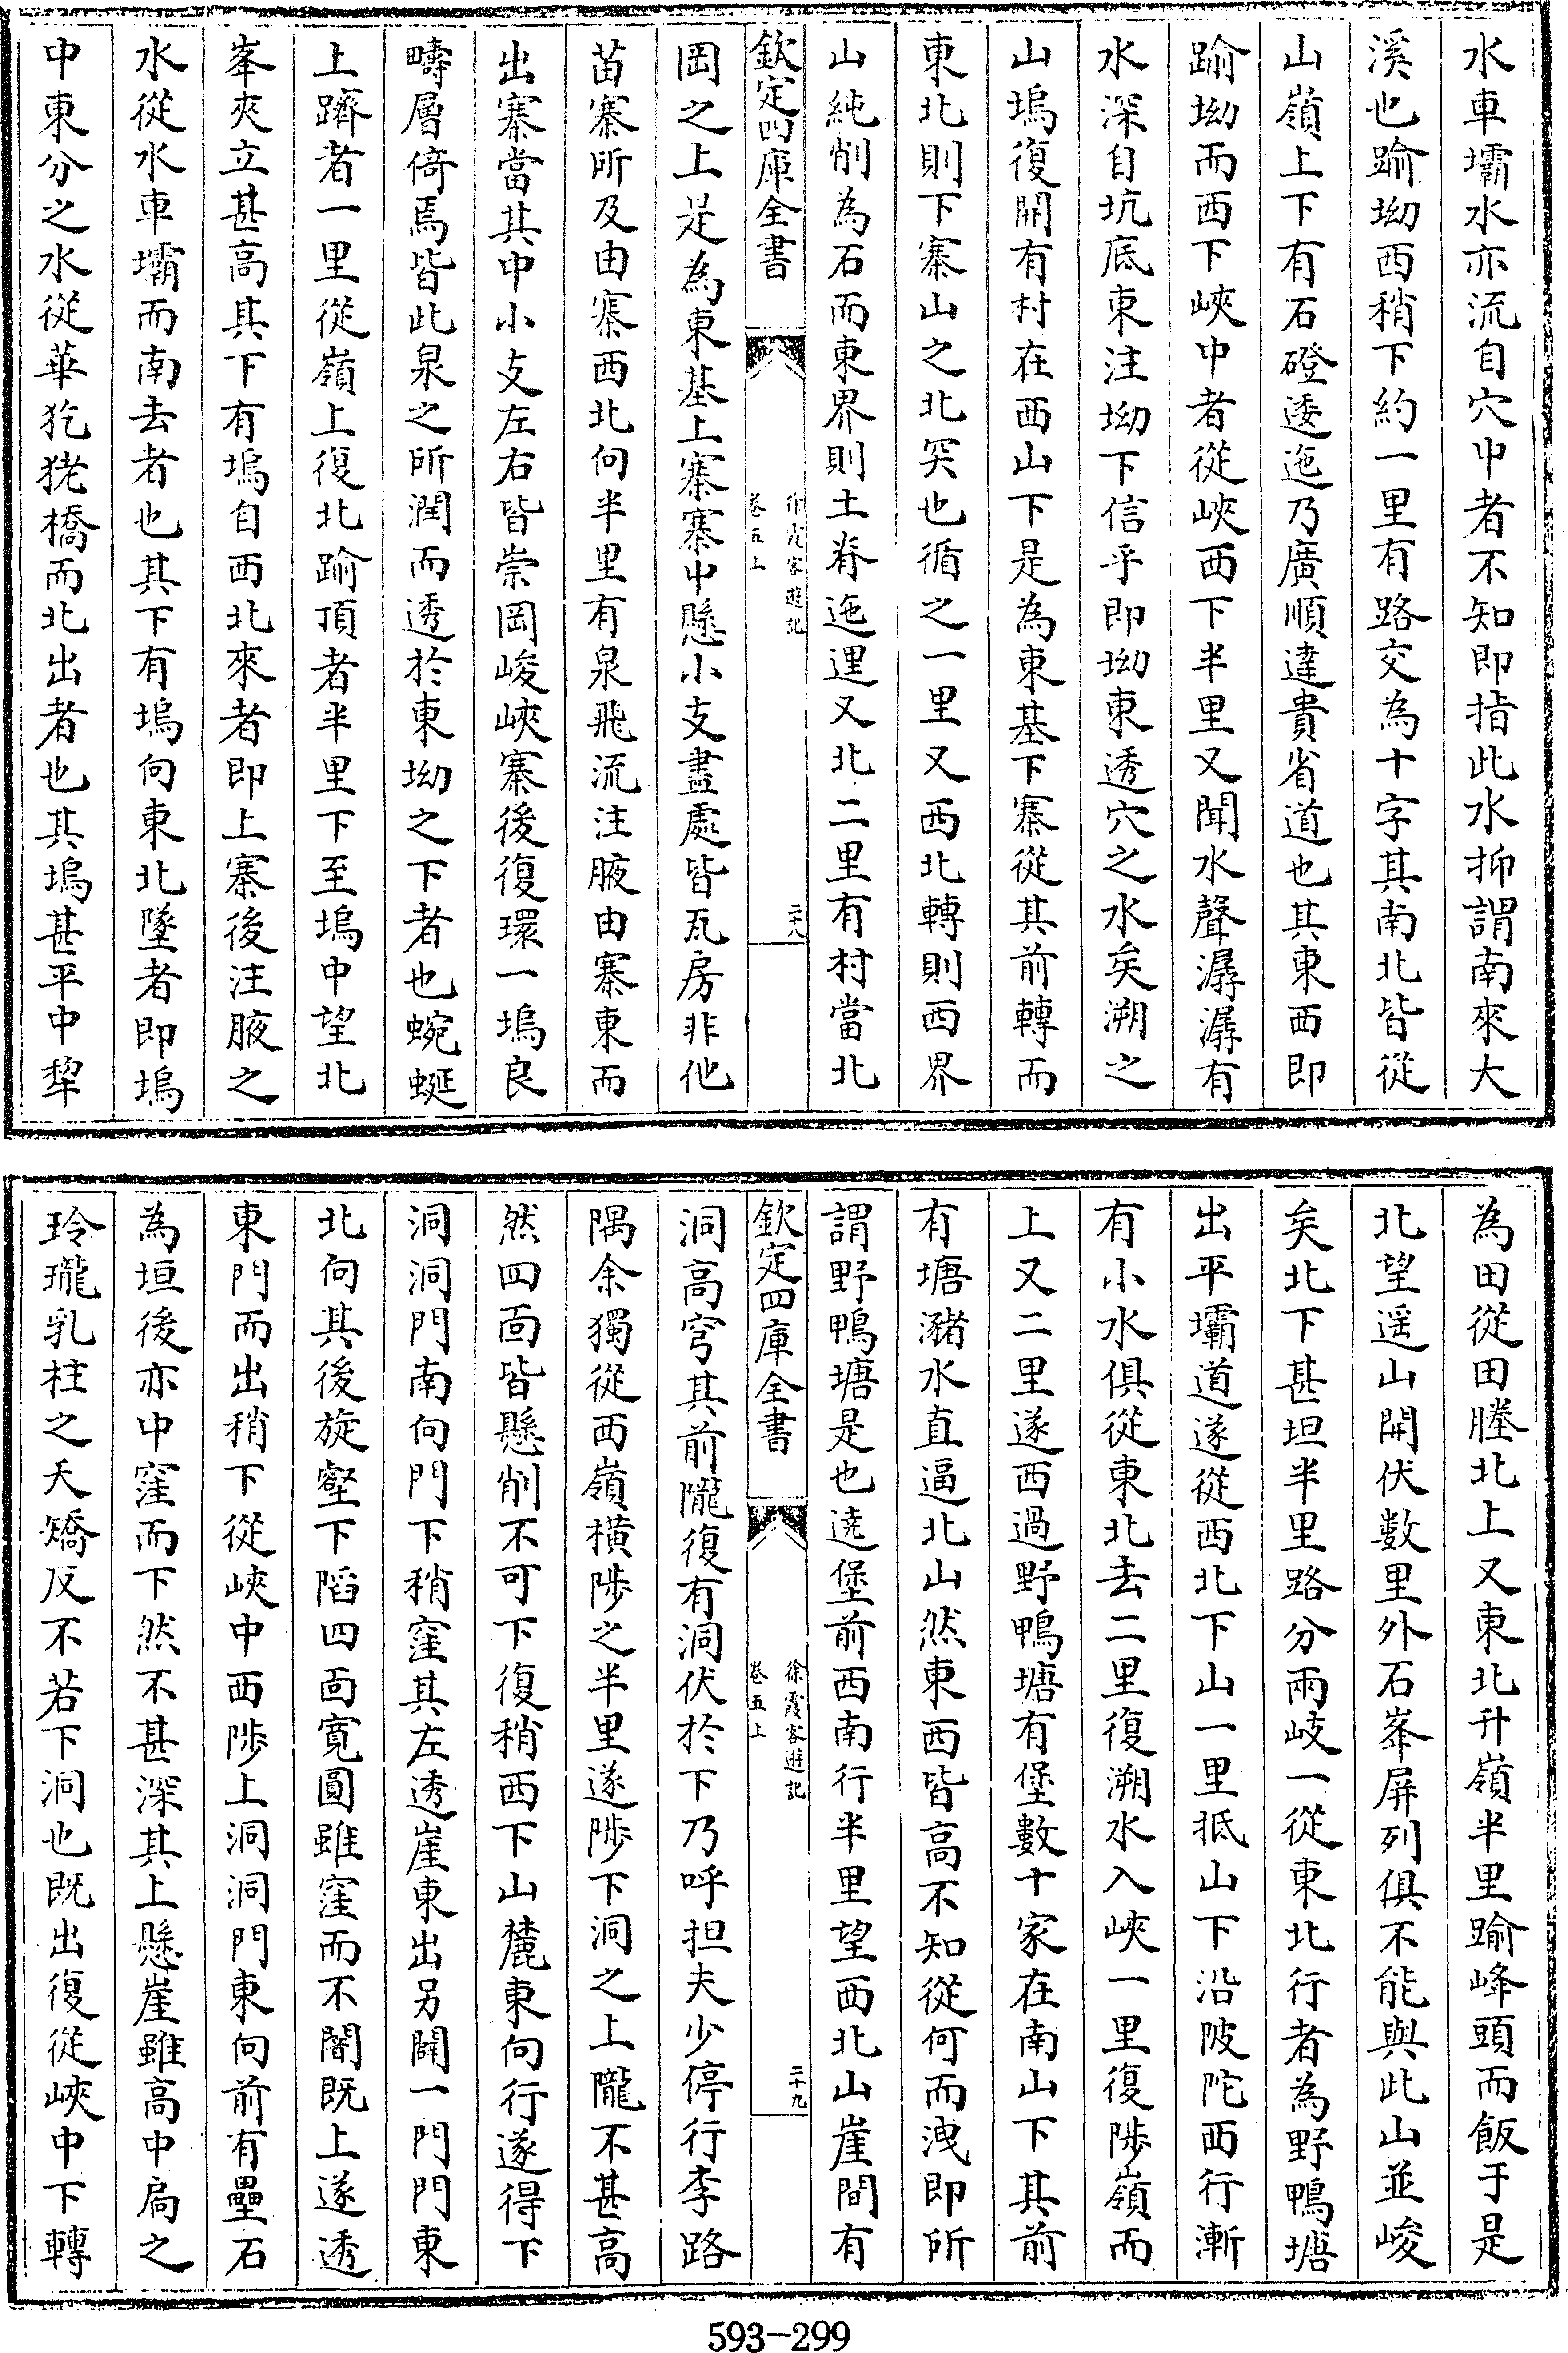 水車壩水亦流自穴中者不知即指此水抑謂南來大
溪也踰坳西稍下約一里有路交為十字其南北皆從
山嶺上下有石磴逶迤乃廣順達貴省道也其東西即
踰坳而西下峽中者從峽西下半里又聞水聲潺潺有
水深自坑底東注坳下信乎即坳東透穴之水矣溯之
山塢復開有村在西山下是為東基下寨從其前轉而
東北則下寨山之北突也循之一里又西北轉則西界
山純削為石而東界則土脊迤邐又北二里有村當北
欽定四庫全書
徐霞客遊記
卷五上
二十八
岡之上是為東基上寨寨中懸小支盡處皆瓦房非他
苗寨所及由寨西北向半里有泉飛流注腋由寨東而
出寨當其中小支左右皆崇岡峻峽寨後復環一塢良
疇層倚焉皆此泉之所潤而透於東坳之下者也蜿蜒
上躋者一里從嶺上復北踰頂者半里下至塢中望北
峯夾立甚高其下有塢自西北來者即上寨後注腋之
水從水車壩而南去者也其下有塢向東北墜者即塢
中東分之水從華犵狫橋而北出者也其塢甚平中犂
為田從田塍北上又東北升嶺半里踰峰頭而飯于是
北望遥山開伏數里外石峯屏列俱不能與此山並峻
矣北下甚坦半里路分兩岐一從東北行者為野鴨塘
出平壩道遂從西北下山一里抵山下沿陂陀西行漸
有小水俱從東北去二里復溯水入峽一里復陟嶺而
上又二里遂西過野鴨塘有堡數十家在南山下其前
有塘瀦水直逼北山然東西皆高不知從何而洩即所
謂野鴨塘是也遶堡前西南行半里望西北山崖間有
欽定四庫全書
徐霞客遊記
卷五上
二十九
洞高穹其前隴復有洞伏於下乃呼担夫少停行李路
隅余獨從西嶺橫陟之半里遂陟下洞之上隴不甚高
然四面皆懸削不可下復稍西下山麓東向行遂得下
洞洞門南向門下稍窪其左透崖東出另闢一門門東
北向其後旋壑下陷四面寬圓雖窪而不闇既上遂透
東門而出稍下從峽中西陟上洞洞門東向前有壘石
為垣後亦中窪而下然不甚深其上懸崖雖高中扃之
玲瓏乳柱之夭矯反不若下洞也既出復從峽中下轉
593-299